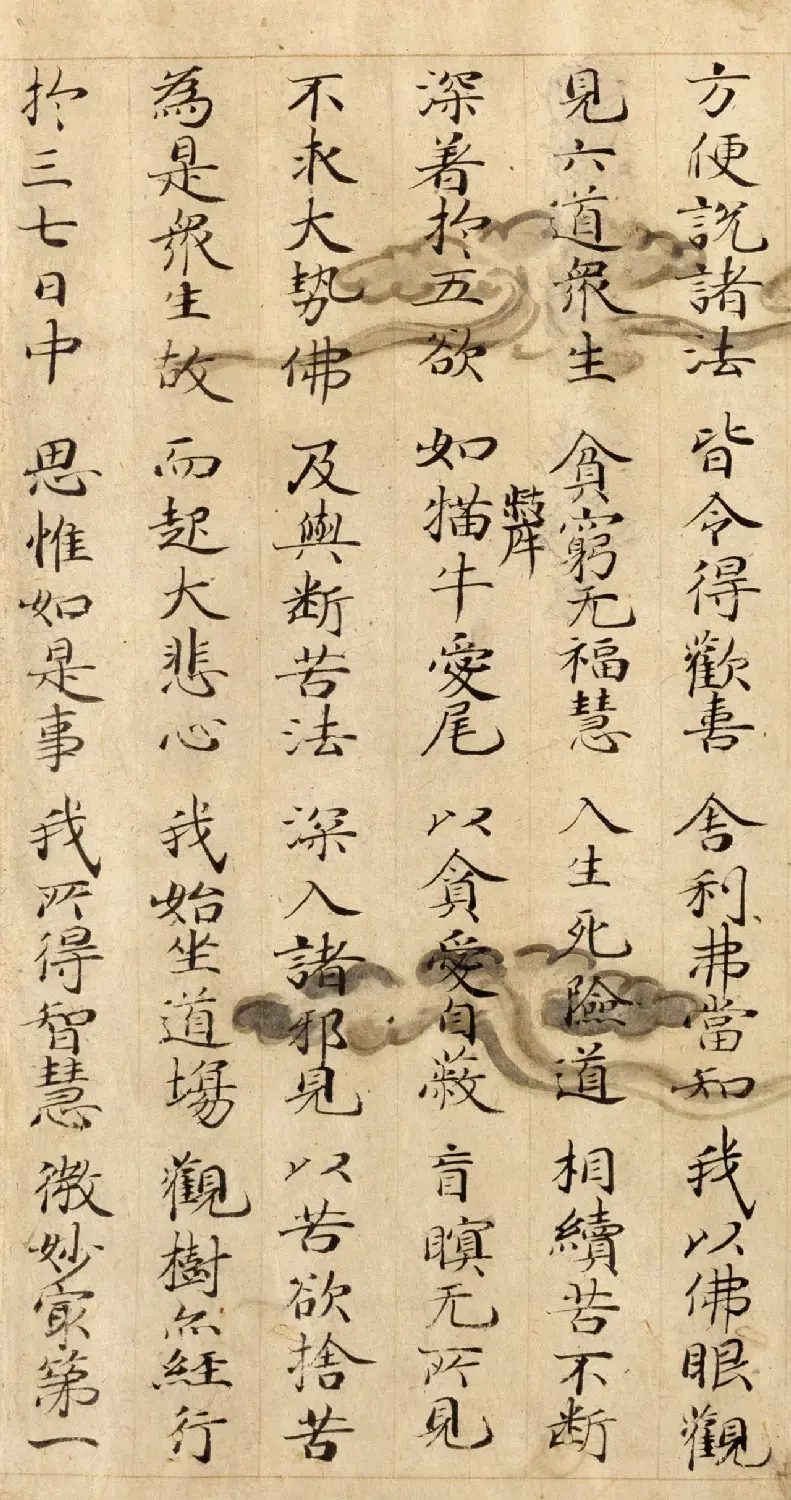 方便說諸法 皆令得歡喜 舎利弗當知 我以佛眼觀
見六道衆生 貧窮无福慧 入生死險道 相續苦不断
深着於五欲 如猫牛愛尾 以貪愛自蔽 盲瞑无所見
不求大勢佛 及與断苦法 深入諸邪見 以苦欲捨苦
為是衆生故 而起大悲心 我始坐道場 觀樹亦經行
於三七日中 思惟如是事 我所得智慧 微妙冣第一